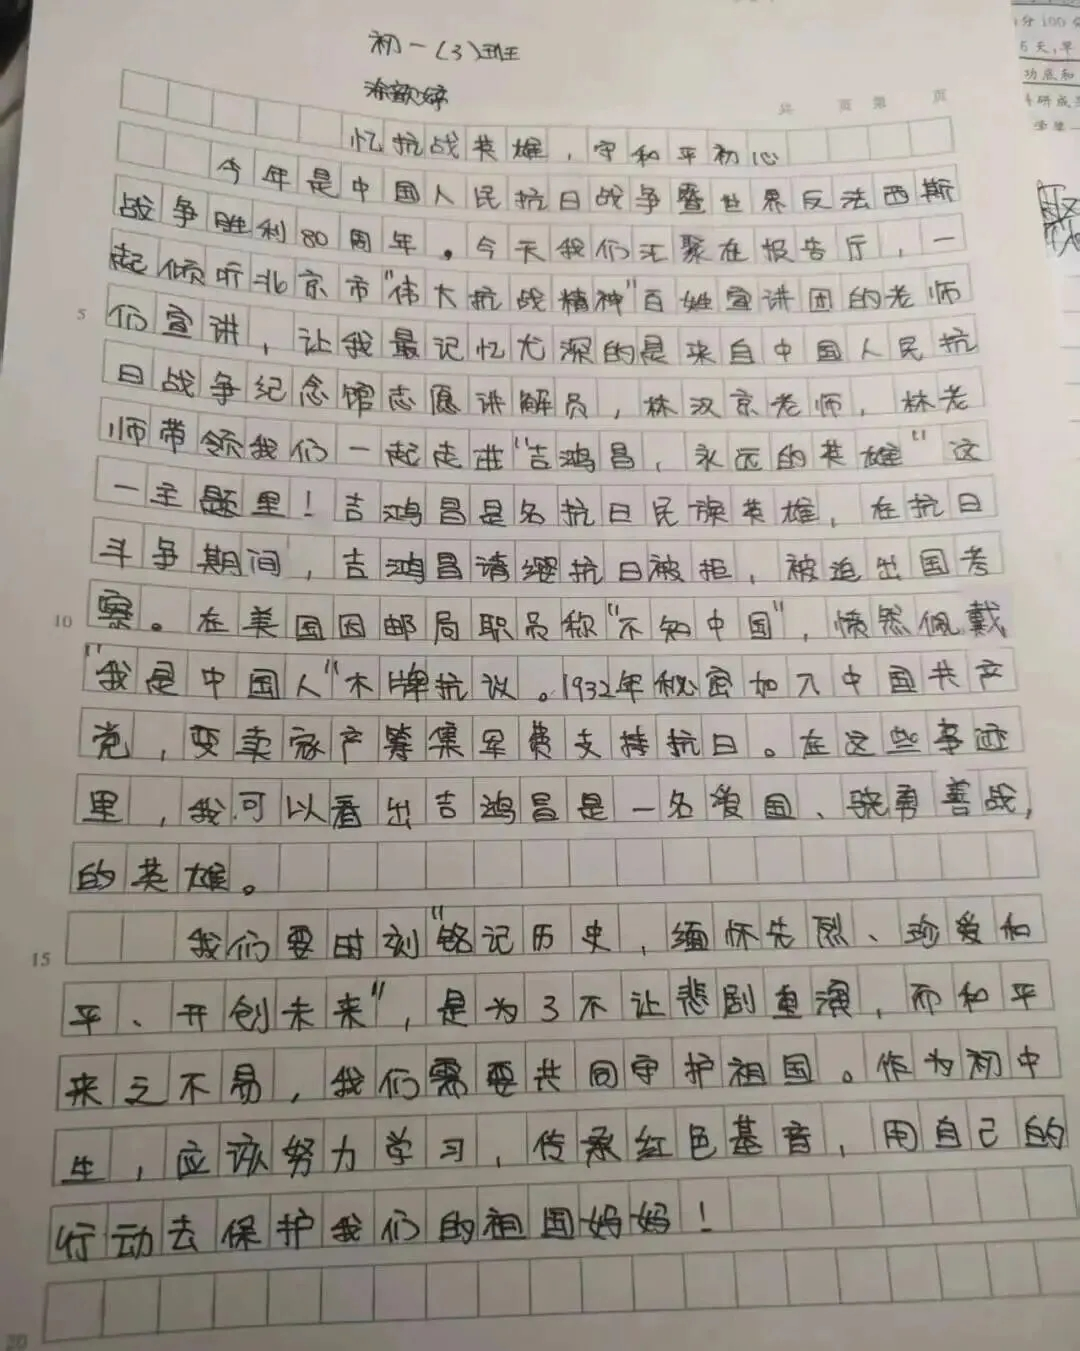 初一(3)班
涂歆婷
共 页 第 页
忆抗战英雄，守和平初心
今年是中国人民抗日战争暨世界反法西斯
战争胜利80周年。今天我们汇聚在报告厅，一
起倾听北京市"伟大抗战精神"百姓宣讲团的老师
5 们宣讲，让我最记忆尤深的是来自中国人民抗
日战争纪念馆志愿讲解员，林汉京老师，林老
师带领我们一起走进"吉鸿昌，永远的英雄"这
一主题里！吉鸿昌是名抗日民族英雄，在抗日
斗争期间，吉鸿昌请缨抗日被拒，被迫出国考
10 察。在美国因邮局职员称"不知中国"，愤然佩戴
"我是中国人"木牌抗议。1932年秘密加入中国共产
党，变卖家产筹集军费支持抗日。在这些事迹
里，我可以看出吉鸿昌是一名爱国、骁勇善战，
的英雄。
15 我们要时刻"铭记历史，缅怀先烈、珍爱和
平、开创未来"，是为了不让悲剧重演，而和平
来之不易，我们需要共同守护祖国。作为初中
生，应该努力学习，传承红色基音，用自己的
行动去保护我们的祖国妈妈！
20
分100
5天,早
功底和
研成
学生